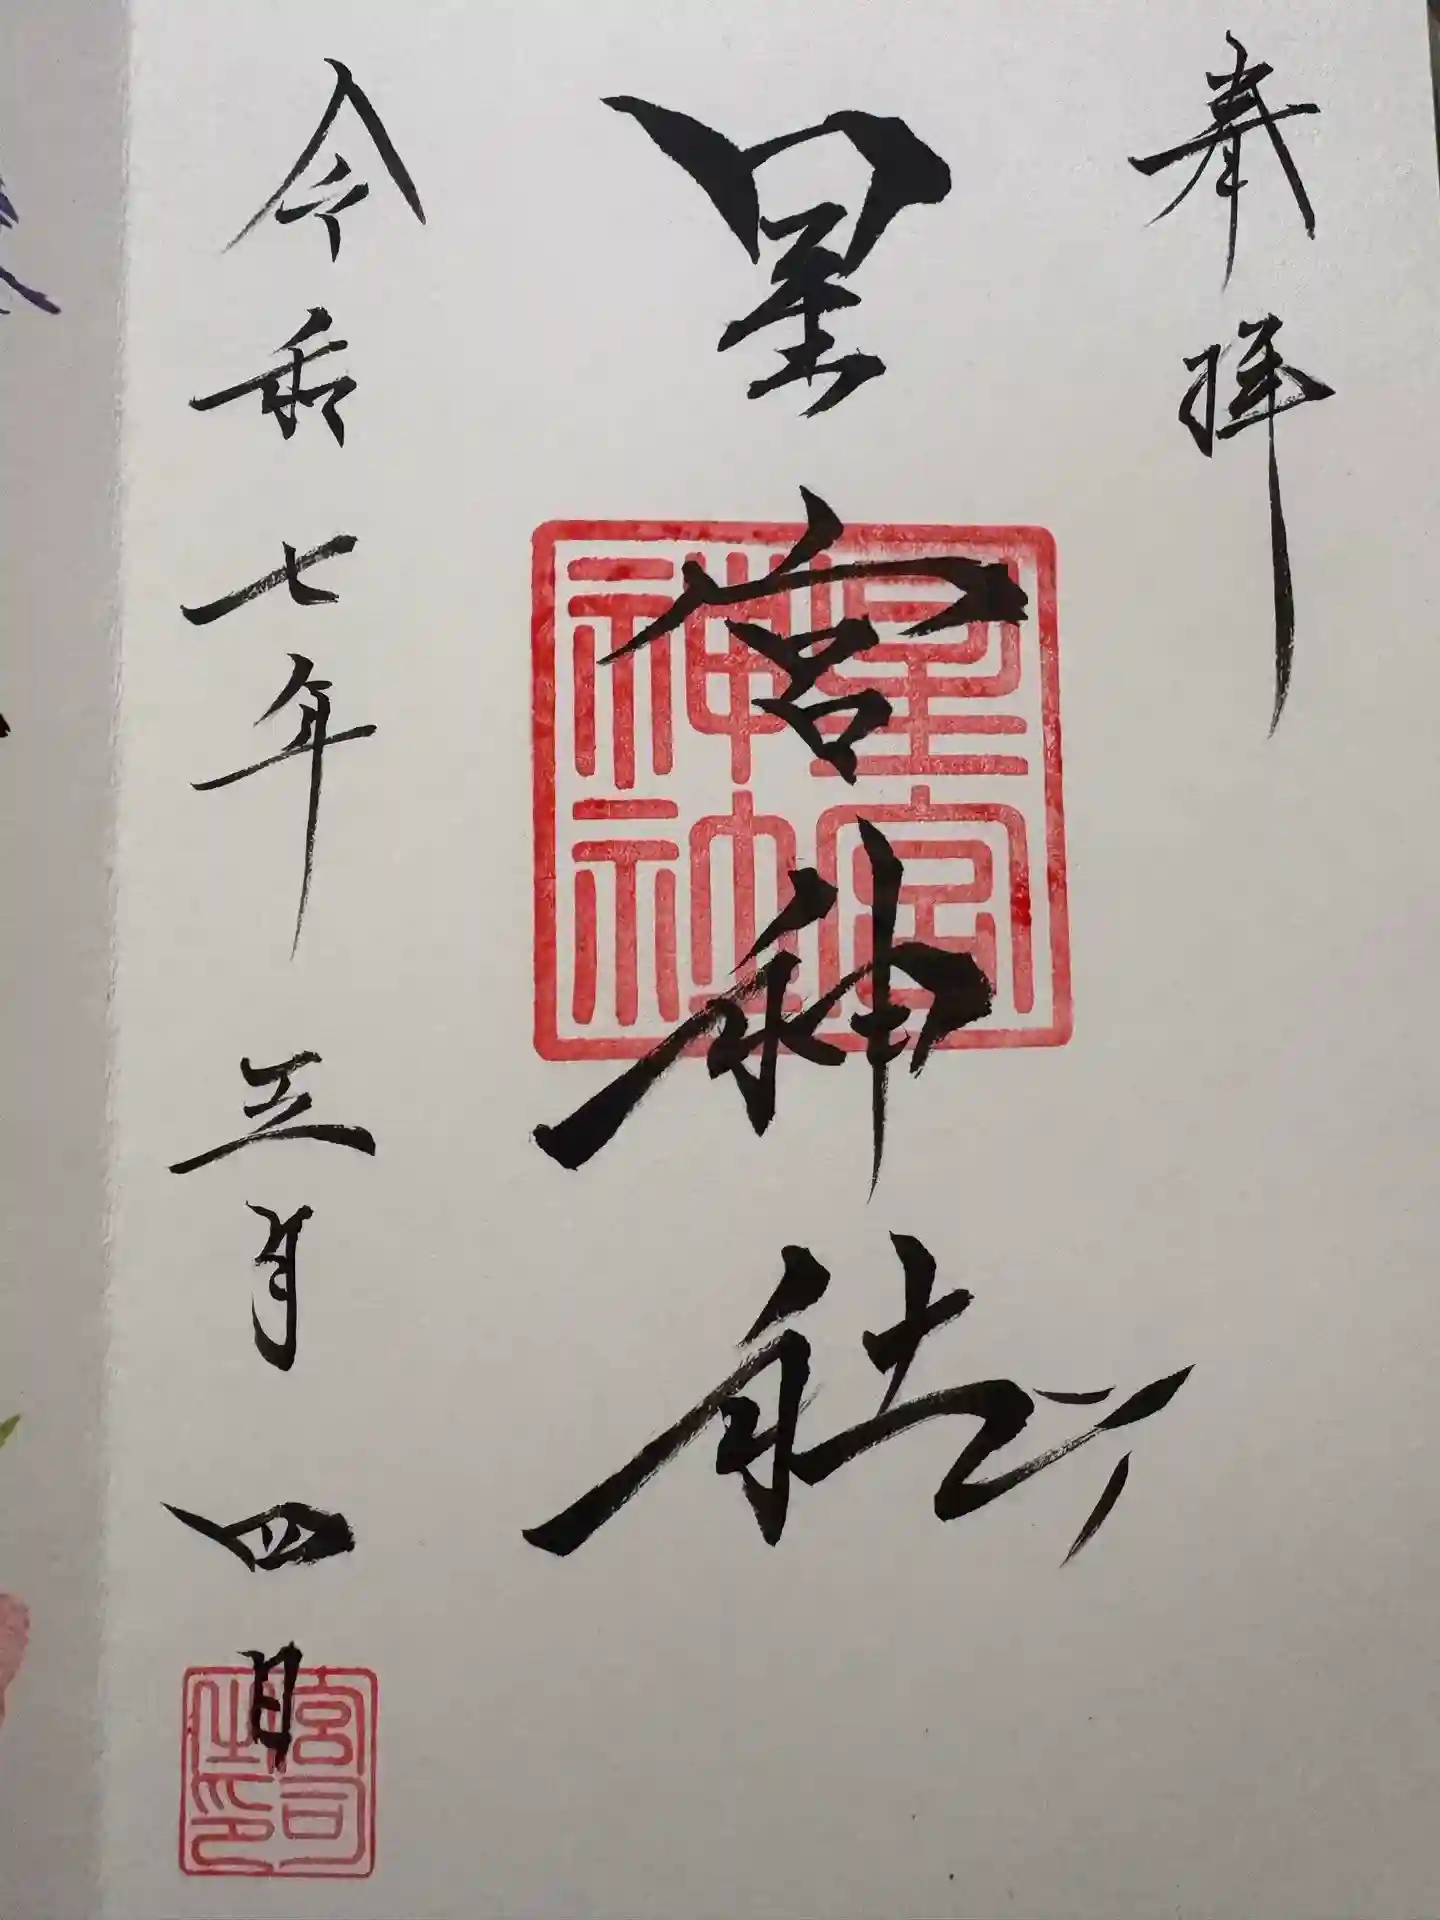 奉拝
星宮神社
令和七年 三月 四日
星宮神社
宮司之印